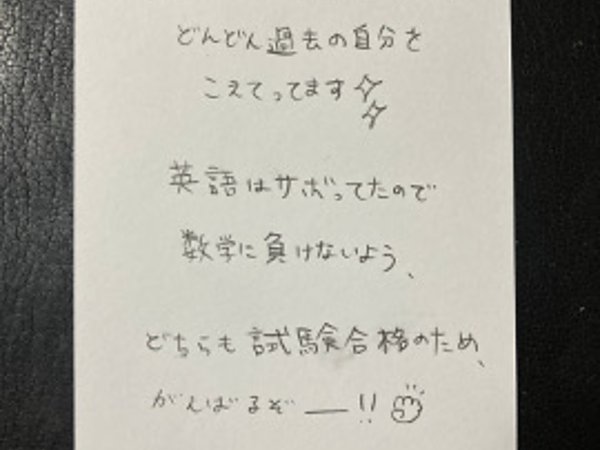 どんどん過去の自分を
こえてってます
英語はサボってたので
数学に負けないよう、
どちらも試験合格のため、
がんばるぞー!!